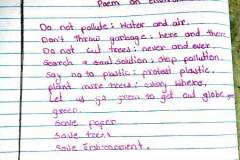 Poem on Environ
Do not pollute : Water and air.
Don't throw garbage : here and there.
Do not cut trees : never and ever.
Search a soul solution : stop pollution.
Say no to plastic : protest plastic.
plant more trees : every where,
Let us go green to get our globe
green.
Save paper
Save trees
Save Environment.